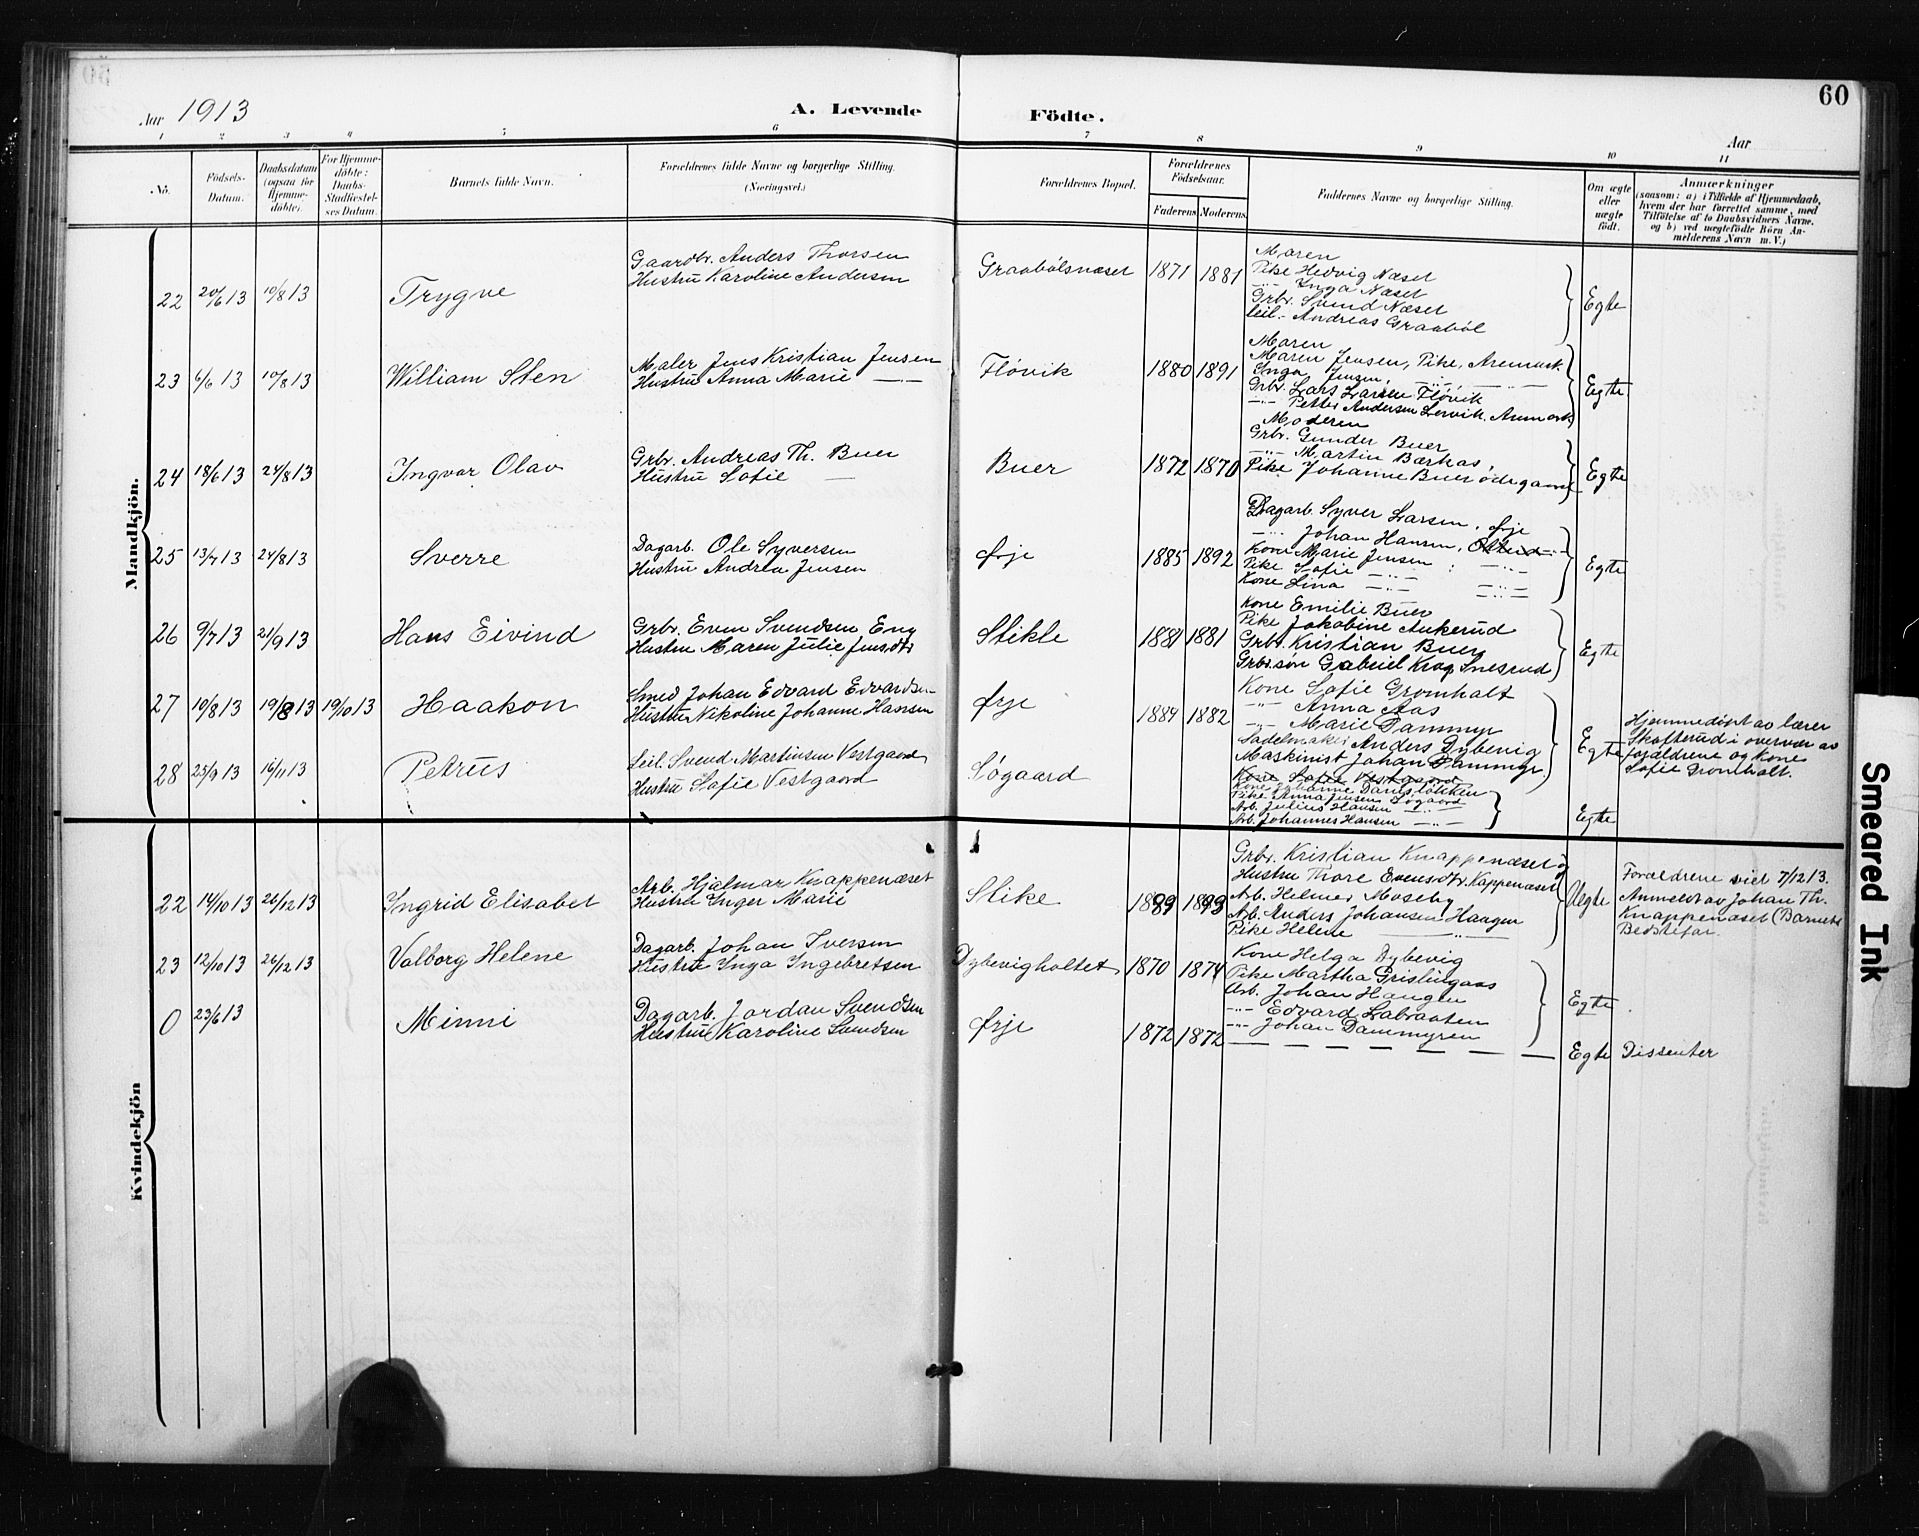 60
Aar 1913
A. Levende Födte.
Aar
1 2 3 4 5 6 7 8 9 10 11
No.
Födsels-
Datum.
Daabsdatum
(ogsaa for
Hjemme-
döbte).
For Hjemme-
döbte:
Daabs-
Stadfæstel-
ses Datum.
Barnets fulde Navn.
Forældrenes fulde Navne og borgerlige Stilling.
(Næringsvei.)
Forældrenes Bopæl.
Forældrenes
Födselsaar.
Faderens Moderens
Faddernes Navne og borgerlige Stilling.
Om ægte
eller
uægte
födt.
Anmærkninger
(saasom: a) i Tilfælde af Hjemmedaab,
hvem der har forrettet samme, med
Tilföielse af to Daabsvidners Navne.
og b) ved uægtefödte Börn An-
melderens Navn m. V.)
Mandkjön.
22 20/6 13 10/8 13 Trygve
Gaardbr. Anders Thorsen
Hustru Karoline Andersen
Graabölsnæset 1871 1881
Maren
Pike Hedvig Næset
-"- Inga Næset
Grbr. Svend Næset
Seil.- Andreas Graaböl
Egte
23 6/6 13 10/8 13 William Sten
Maler Jens Kristian Jensen
Hustru Anna Marie —"—
Fløvik 1880 1891
Maren
Maren Jensen, Pike, Aremark
Inga Jensen, -"- -"-
Grbr. Lars Larsen Fløvik
-"- Petter Andersen Lervik. Aremark
Egte
24 18/6 13 24/8 13 Ingvar Olav
Grbr. Andreas Th. Buer
Hustru Sofie —
Buer 1872 1870
Moderen
Grbr. Gunder Buer
-"- Martin Bærkas,
Pike Johanne Buer ødegaard
Egte
25 13/7 13 24/8 13 Sverre
Dagarb. Ole Syversen
Hustru Andrea Jensen
Ørje 1885 1892
Dagarb. Syver Larsen, Ørje
-"- Johan Hansen, -"-
Kone Marie Jensen : -"-
Pike Sofie -"- -"-
Kone Lina -"- -"-
Egte
26 9/7 13 21/9 13 Hans Eivind
Grbr. Even Svendsen Eng
Hustru Maren Julie Jensdtr
Stikle 1881 1881
Kone Emilie Buer
Pike Jakobine Ankerud
Grbr. Kristian Buer
Grbr.søn Gabriel Krog Snesrud
Egte
27 10/8 13 19/8 13 19/10 13 Haakon
Smed Johan Edvard Edvardsen
Hustru Nikoline Johanne Hansen
Ørje 1884 1882
Kone Sofie Gromholt
-"- Anna Aas
-"- Marie Dammyr
Sadelmaker Anders Dybevig
Maskinist Johan Dammyr.
Egte
Hjemmedøpt av lærer
Skofterud i overvær av
forældrene og Kone
Sofie Gromholt.
28 25/9 13 16/11 13 Petrus
Seil. Svend Martinsen Vestgaard
Hustru Sofie Vestgaard
Søgaard
Kone Sofie Vestgaard
Kone Johanne Damsløkken
Pike Anna Jensen Søgaard
Arb. Julius Hansen -"-
Arb. Johannes Hansen -"-
Egte
Kvindekjön
22 14/10 13 26/12 13 Ingrid Elisabet
Arb. Hjalmar Knappenæset
Hustru Inger Marie
Stike 1889 1893
Grbr. Kristian Knappenæset og
Hustru Thore Evensdtr. Kappenæset
Arb. Helmer Moseby
Arb. Anders Johansen Haagen
Pike Helene —"—
Uegte
Forældrene viet 7/12 13.
Anmeldt av Johan Th.
Knappenæset (Barnets
Bedstefar.
23 12/10 13 26/12 13 Valborg Helene
Dagarb. Johan Iversen
Hustru Inga Ingebretsen
Dybevigholtet 1870 1874
Kone Helga Dybevig
Pike Martha Grislingaas
Arb. Johan Haugen
-"- Edvard Labraaten
-"- Johan Dammyren
Egte
0 23/6 13 Minni
Dagarb. Jordan Svendsen
Hustru Karoline Svendsen
Ørje 1872 1872 — — — — — — —
Egte Dissenter
Smeared Ink